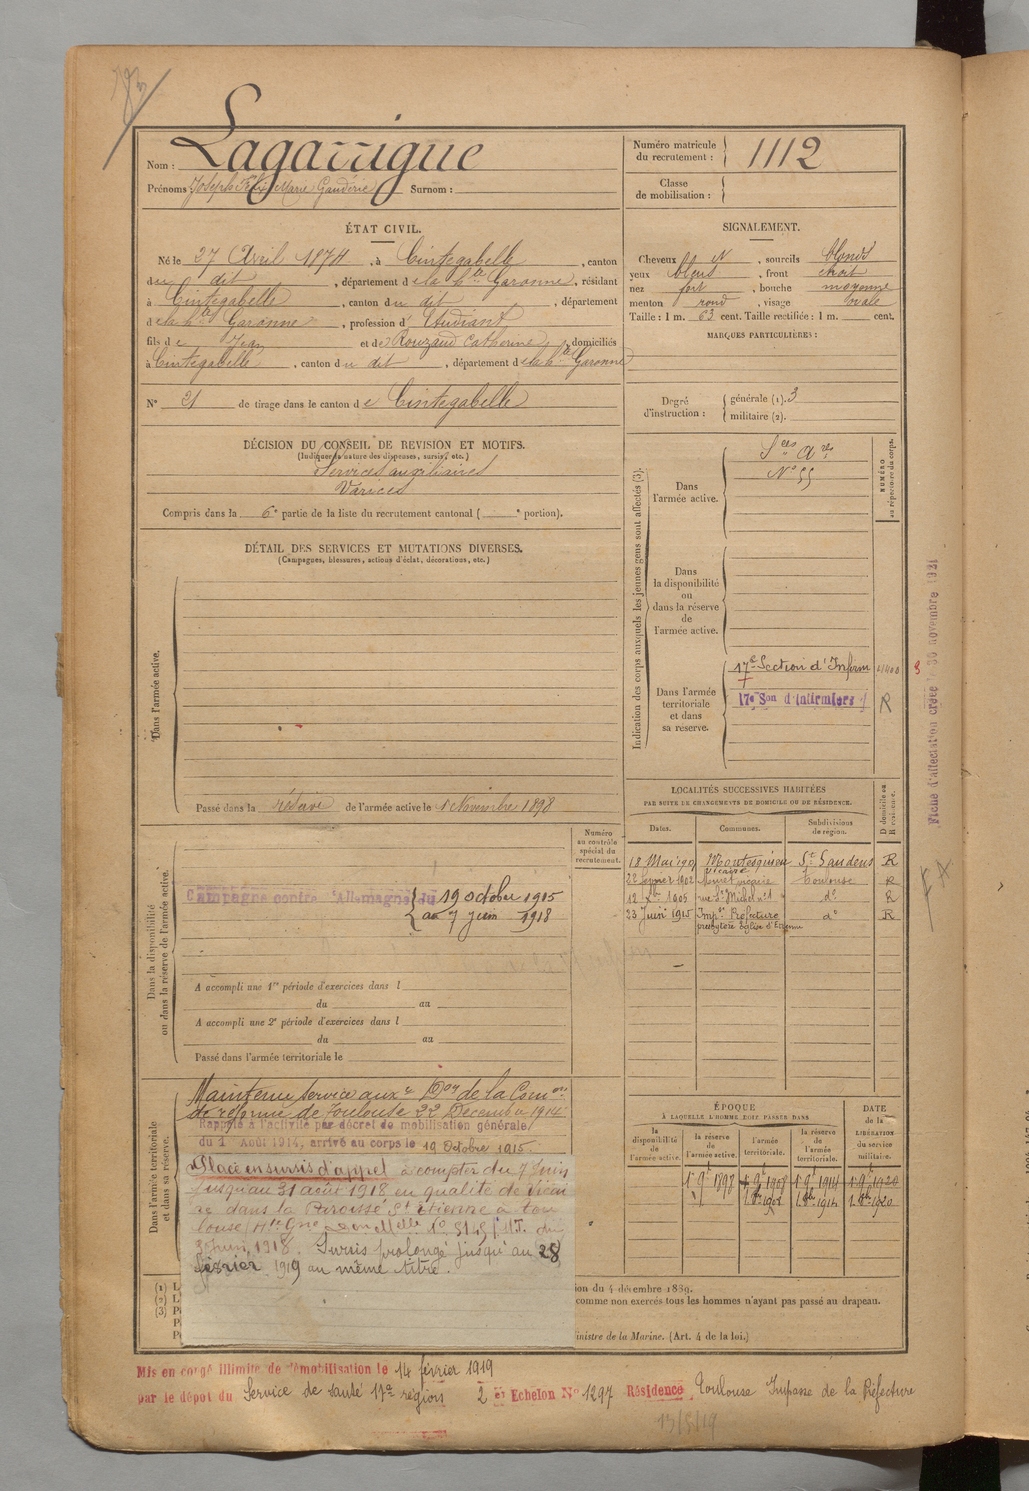 Lagarrigue
Nom :
Prénoms Joseph Félix Marie Gaudéric Surnom :
Numéro matricule du recrutement : 1112
Classe de mobilisation :
ÉTAT CIVIL.
Né le 27 Avril 1874, à Cintegabelle, canton
du dit, département de la hte Garonne, résidant
à Cintegabelle, canton du dit, département
de la hte Garonne, profession d'Etudiant
fils de Jean et de Rouzaud Catherine, domiciliés
à Cintegabelle, canton du dit, département de la hte Garonne
N° 21 de tirage dans le canton de Cintegabelle
SIGNALEMENT.
Cheveux N, sourcils blonds
yeux bleus, front étroit
nez fort, bouche moyenne
menton rond, visage ovale
Taille : 1 m. 63 cent. Taille rectifiée : 1 m. cent.
MARQUES PARTICULIÈRES :
Degré d'instruction : générale (1). 3
militaire (2).
DÉCISION DU CONSEIL DE REVISION ET MOTIFS.
(Indiquer la nature des dispenses, sursis, etc.)
Services auxiliaires
Varices
Compris dans la 6e partie de la liste du recrutement cantonal ( e portion).
DÉTAIL DES SERVICES ET MUTATIONS DIVERSES.
(Campagnes, blessures, actions d'éclat, décorations, etc.)
Dans l'armée active.
Passé dans la réserve de l'armée active le 1 Novembre 1898
Indication des corps auxquels les jeunes gens sont affectés (3).
NUMÉRO au répertoire du corps.
Dans l'armée active.
Sces Ares
N° 55
Dans la disponibilité ou dans la réserve de l'armée active.
Dans l'armée territoriale et dans sa réserve.
17e Section d'Infirm
17e Son d'Infirmiers
R
Fiche d'affectation créée le 30 novembre 1921
LOCALITÉS SUCCESSIVES HABITÉES
PAR SUITE DE CHANGEMENTS DE DOMICILE OU DE RÉSIDENCE.
Dates. Communes. Subdivisions de région. D domicile ou R résidence.
18 Mai 1901 Montesquieu vicaire St Gaudens R
22 février 1902 Muret vicaire Toulouse R
12 Xbre 1905 rue St Michel n° 1 do R
23 Juin 1915 Imp. Préfecture do R
presbytère Eglise St Etienne
Numéro au contrôle spécial du recrutement.
Dans la disponibilité ou dans la réserve de l'armée active.
Campagne contre l'Allemagne du 19 octobre 1915
au 7 juin 1918
A accompli une 1re période d'exercices dans l
du au
A accompli une 2e période d'exercices dans l
du au
Passé dans l'armée territoriale le
Dans l'armée territoriale et dans sa réserve.
Maintenu service auxre Don de la Comon
de réforme de Toulouse 22 Décembre 1914
Rappelé à l'activité par décret de mobilisation générale
du 1 Août 1914, arrivé au corps le 19 Octobre 1915.
Placé en sursis d'appel à compter du 7 Juin
jusqu'au 31 août 1918 en qualité de vicai
re dans la Paroisse St Etienne à Tou
louse Hte Gne
juin 1918. Sursis prolongé jusqu'au 28
février 1919 au même titre.
ÉPOQUE
À LAQUELLE L'HOMME DOIT PASSER DANS
la disponibilité de l'armée active. la réserve de l'armée active. l'armée territoriale. la réserve de l'armée territoriale.
DATE de la LIBÉRATION du service militaire.
1er 9bre 1898 1er 9bre 1908 1er 9bre 1914 1er 9bre 1920
(1) L
(2) L
(3) P
tion du 4 décembre 1889.
comme non exercés tous les hommes n'ayant pas passé au drapeau.
inistre de la Marine. (Art. 4 de la loi.)
Mis en congé illimité de démobilisation le 14 février 1919
par le dépôt du Service de santé 17e région 2 er Echelon N° 1297 Résidence Toulouse Impasse de la Préfecture
13/5/19